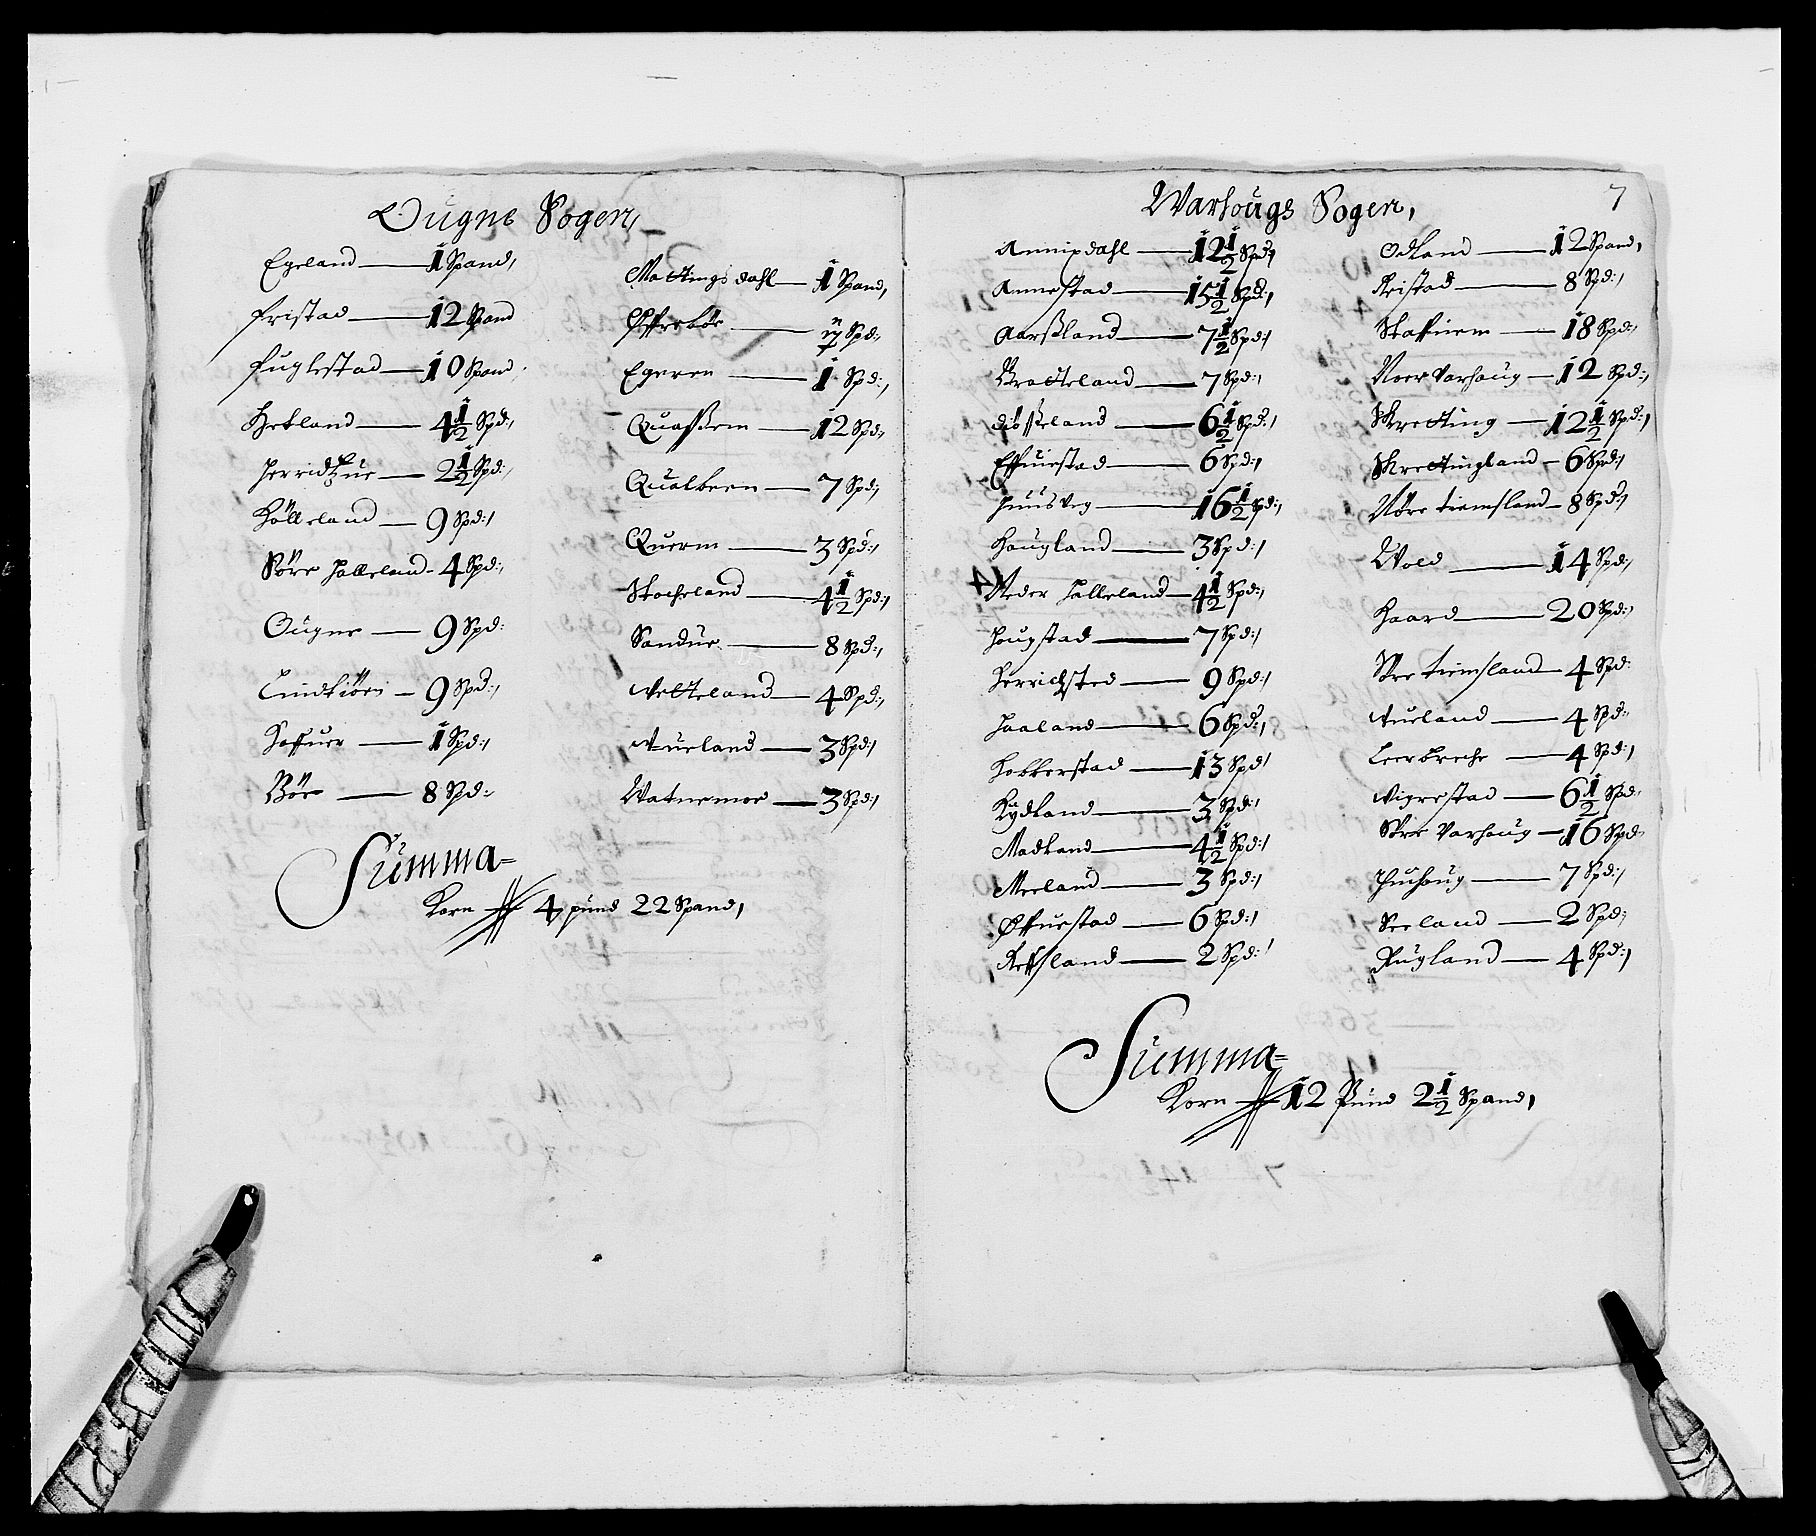 Ougne Sogen,
Egeland — 1 Spand,
Fristad — 12 Spand
Fuglestad — 10 Spand,
Hetland — 4 1/2 Spd:,
— 2 1/2 Spd:,
Hölleland — 9 Spd:,
Söre Halleland - 4 Spd:,
Ougne — 9 Spd:
— 9 Spd:,
Haffuer — 1 Spd:,
Böe — 8 Spd:
Mattingsdahl — 1 Spand,
— Spd:,
Egeren — 1 Spd:,
Quassem — 12 Spd:,
Qualbeen — 7 Spd:,
Querm — 3 Spd:,
Stocheland — 4 1/2 Spd:,
Sandue — 8 Spd:,
Vetteland — 4 Spd:,
Aueland — 3 Spd:,
Watnemoe — 3 Spd:,
Summa=
Korn 4 pund 22 Spand,
Warhougs Sogen,
7
Annisdahl — 12 1/2 Spd:,
Annestad — 15 1/2 Spd:,
Aarsland — 7 1/2 Spd:,
Bratteland — 7 Spd:,
— 6 1/2 Spd:,
— 6 Spd:,
Huusveg — 16 1/2 Spd:,
Haugland — 3 Spd:,
Neder Halleland — 4 1/2 Spd:,
Hougstad — 7 Spd:,
Herrichsted — 9 Spd:,
Haaland — 6 Spd:,
Kobberstad — 13 Spd:
Kydland — 3 Spd:,
Madland — 4 1/2 Spd:,
Meeland — 3 Spd:,
Øffuestad — 6 Spd:,
Refsland — 2 Spd:
Odland — 12 Spand,
Reistad — 8 Spd:,
— 18 Spd:,
Noer Varhaug — 12 Spd:,
Skretting — 12 1/2 Spd:,
Skrettingland — 6 Spd:,
Nöre tiemsland — 8 Spd:,
Wold — 14 Spd:,
Haard — 20 Spd:,
Sòre tiemsland — 4 Spd:
Aueland — 4 Spd:
Leerbreche — 4 Spd:,
Vigrestad — 6 1/2 Spd:
Söre Varhaug — 16 Spd:
— 7 Spd:,
Seeland — 2 Spd:,
Rugland — 4 Spd:,
Summa=
Korn 12 Pund 2 1/2 Spand,